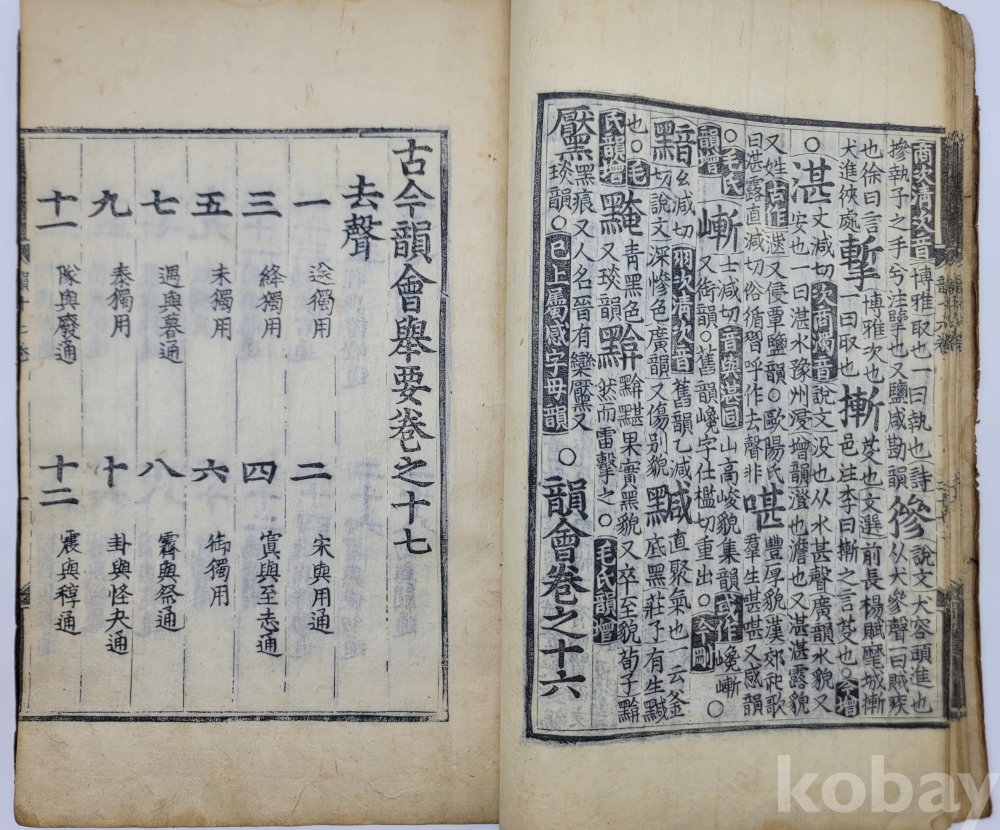 商次清次音博雅取也一曰執也(詩
摻執子之手兮注擥也又鹽咸勘韻
㺑
說文犬容頭進也
从犬參聲一曰賊疾
也徐曰言
犬進狹處
博雅次也
一曰取也
摲
芟也文選前長楊賦麾城摲
邑注李曰摲之言芟也○今增
○湛
丈減切次商濁音說文没也从水甚聲廣韻水貌又
安也一曰湛水豫州浸增韻澄也澹也又湛湛露貌
又姓古作 又侵覃鹽韻○歐陽氏
曰湛露直減切俗循習呼作去聲非
啿
豐厚貌漢郊祀歌
羣生啿啿又感韻
○毛氏
韻增
嶃
士減切音與湛同山高峻貌集韻或作巉嶃○
又銜韻○舊韻巉字仕檻切重出○今刪
黯
幺減切羽次清次音舊韻乙減
切說文深慘色廣韻又傷別貌
黬
直聚氣也一云釜
底黑莊子有生黬
也○毛
氏韻增
黤
靑黑色
又琰韻
黭
黭黮果實黑貌又卒至貌荀子黭
然而雷擊之○毛氏韻增
黶
黑痕又人名晉有欒黶又
琰韻○已上屬感字母韻
○韻會卷之十六
古今韻會舉要卷之十七
去聲
一 送獨用 二 宋與用通
三 絳獨用 四 寘與至志通
五 未獨用 六 御獨用
七 遇與暮通 八 霽與祭通
九 泰獨用 十 卦與怪夬通
十一 隊與廢通 十二 震與稕通
kobay